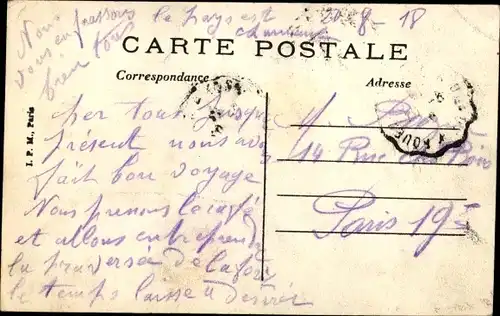 le pays est
charmant
20-8-18
Nous
vous embrassons
bien tous
CARTE POSTALE
Correspondance
Adresse
I. P. M., Paris
per tous jusque
présent nous avons
fait bon voyage
Nous prenons le café
et allons entreprendre
la traversée de la forêt
le temps laisse à désirer
M
14 Rue des Bois
Paris 19e
ROUE